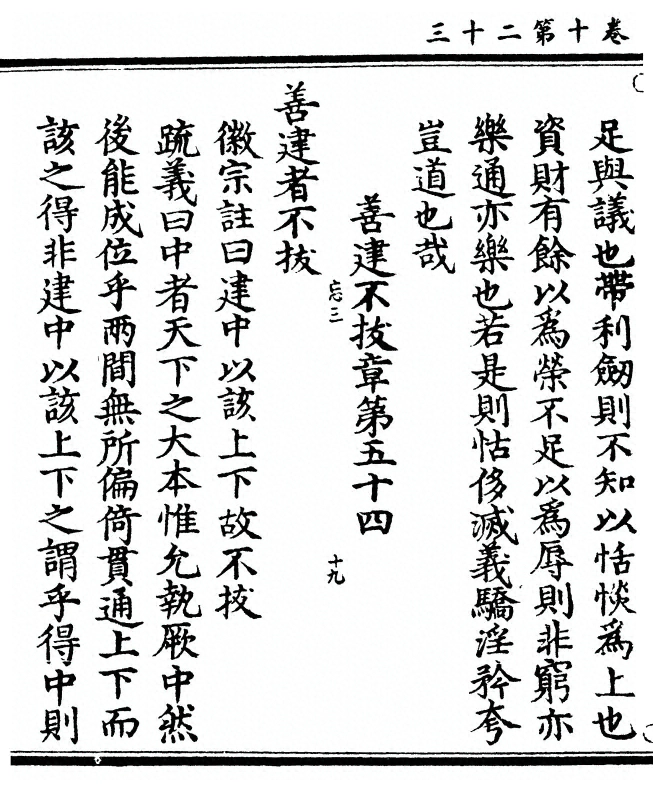 卷十第二十三
足與議也帶利劒則不知以恬惔爲上也
資財有餘以爲榮不足以爲辱則非窮亦
樂通亦樂也若是則怙侈滅義驕淫矜夸
豈道也哉
善建不拔章第五十四
忘三
十九
善建者不拔
徽宗註曰建中以該上下故不拔
疏義曰中者天下之大本惟允執厥中然
後能成位乎兩間無所偏倚貫通上下而
該之得非建中以該上下之謂乎得中則